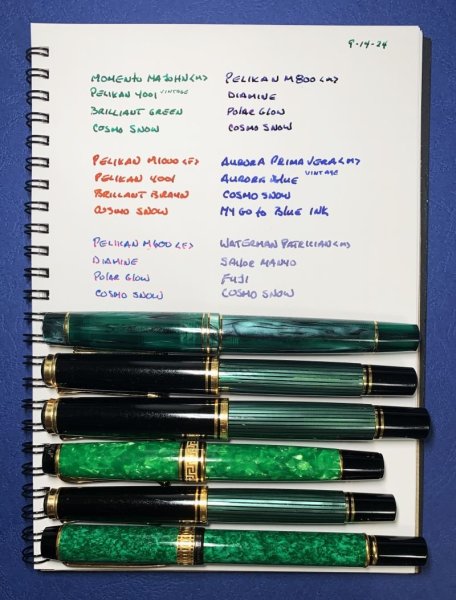 9-14-24
MOMENTO MAJOHN <M>
PELIKAN 4001 VINTAGE
BRILLIANT GREEN
COSMO SNOW
PELIKAN M800 <M>
DIAMINE
POLAR GLOW
COSMO SNOW
PELIKAN M1000 <F>
PELIKAN 4001
BRILLANT BRAUN
COSMO SNOW
AURORA PRIMAVERA <M>
AURORA BLUE VINTAGE
COSMO SNOW
MY GO TO BLUE INK
PELIKAN M600 <F>
DIAMINE
POLAR GLOW
COSMO SNOW
WATERMAN PATRICIAN <M>
SAILOR MANYO
FUJI
COSMO SNOW